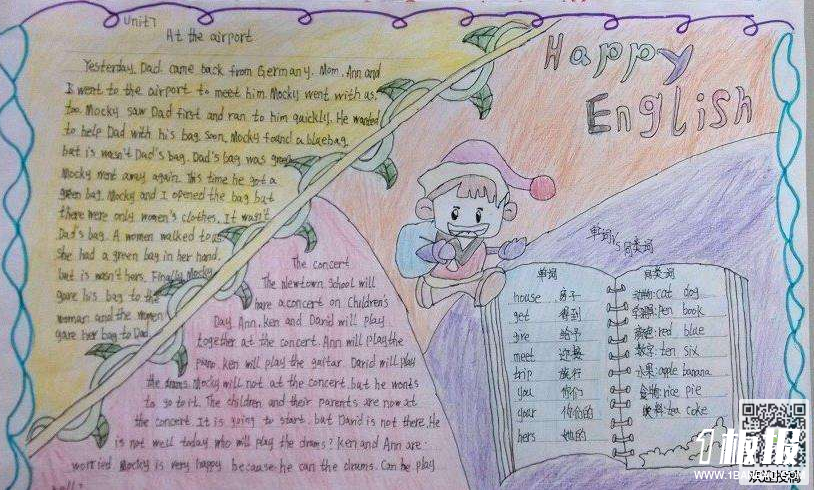 Unit7
At the airport
Yesterday, Dad came back from Germany. Mom, Ann and
I went to the airport to meet him. Mocky went with us,
too. Mocky saw Dad first and ran to him quickly. He wanted
to help Dad with his bag. Soon, Mocky found a blue bag,
but is wasn't Dad's bag. Dad's bag was green
Mocky went away again. This time he got a
green bag. Mocky and I opened the bag but
there were only women's clothes. It wasn't
Dad's bag. A women walked to us
She had a green bag in her hand,
but is wasn't hers. Finally, Mocky
gave his bag to the
woman and the women
gave her bag to Dad
The concert
The Newtown School will
have a concert on Children's
Day. Ann, Ken and David will play
together at the concert. Ann will play the
piano. Ken will play the guitar. David will play
the drums. Mocky will not at the concert but he wants
to go to it. The children and their parents are now at
the concert. It is going to start. but David is not there. He
is not well today who will play the drums? Ken and Ann are
worried Mocky is very happy because he can the drums. Can he play
well?
Happy
English
单词与同类词
单词
house 房子
get 得到
give 给予
meet 迎接
trip 旅行
you 你们
your 你们的
hers 她的
同类词
动物:cat dog
pen book
颜色:red blue
数字:ten six
水果:apple banana
食物:rice pie
饮料:tea coke
1板报
欢迎投稿